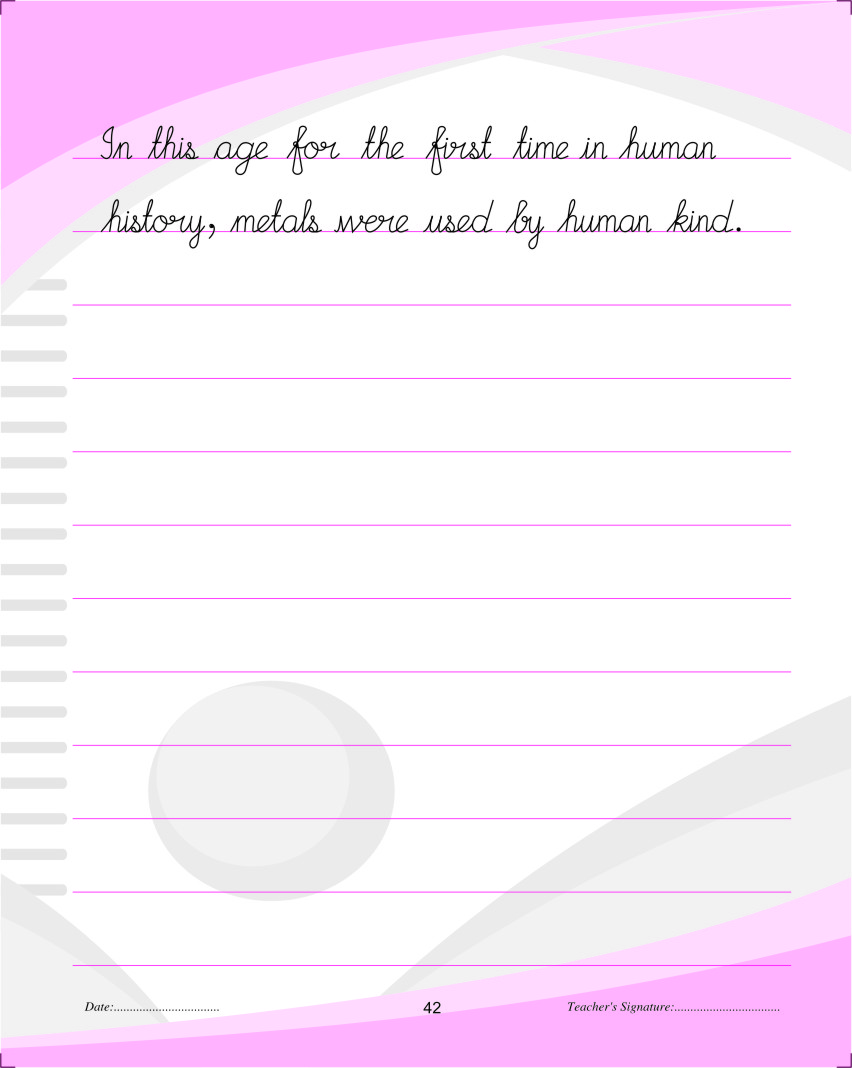 In this age for the first time in human
history, metals were used by human kind.
Date:................................. 42 Teacher's Signature:.................................